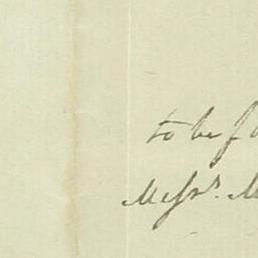 to be
Messrs.